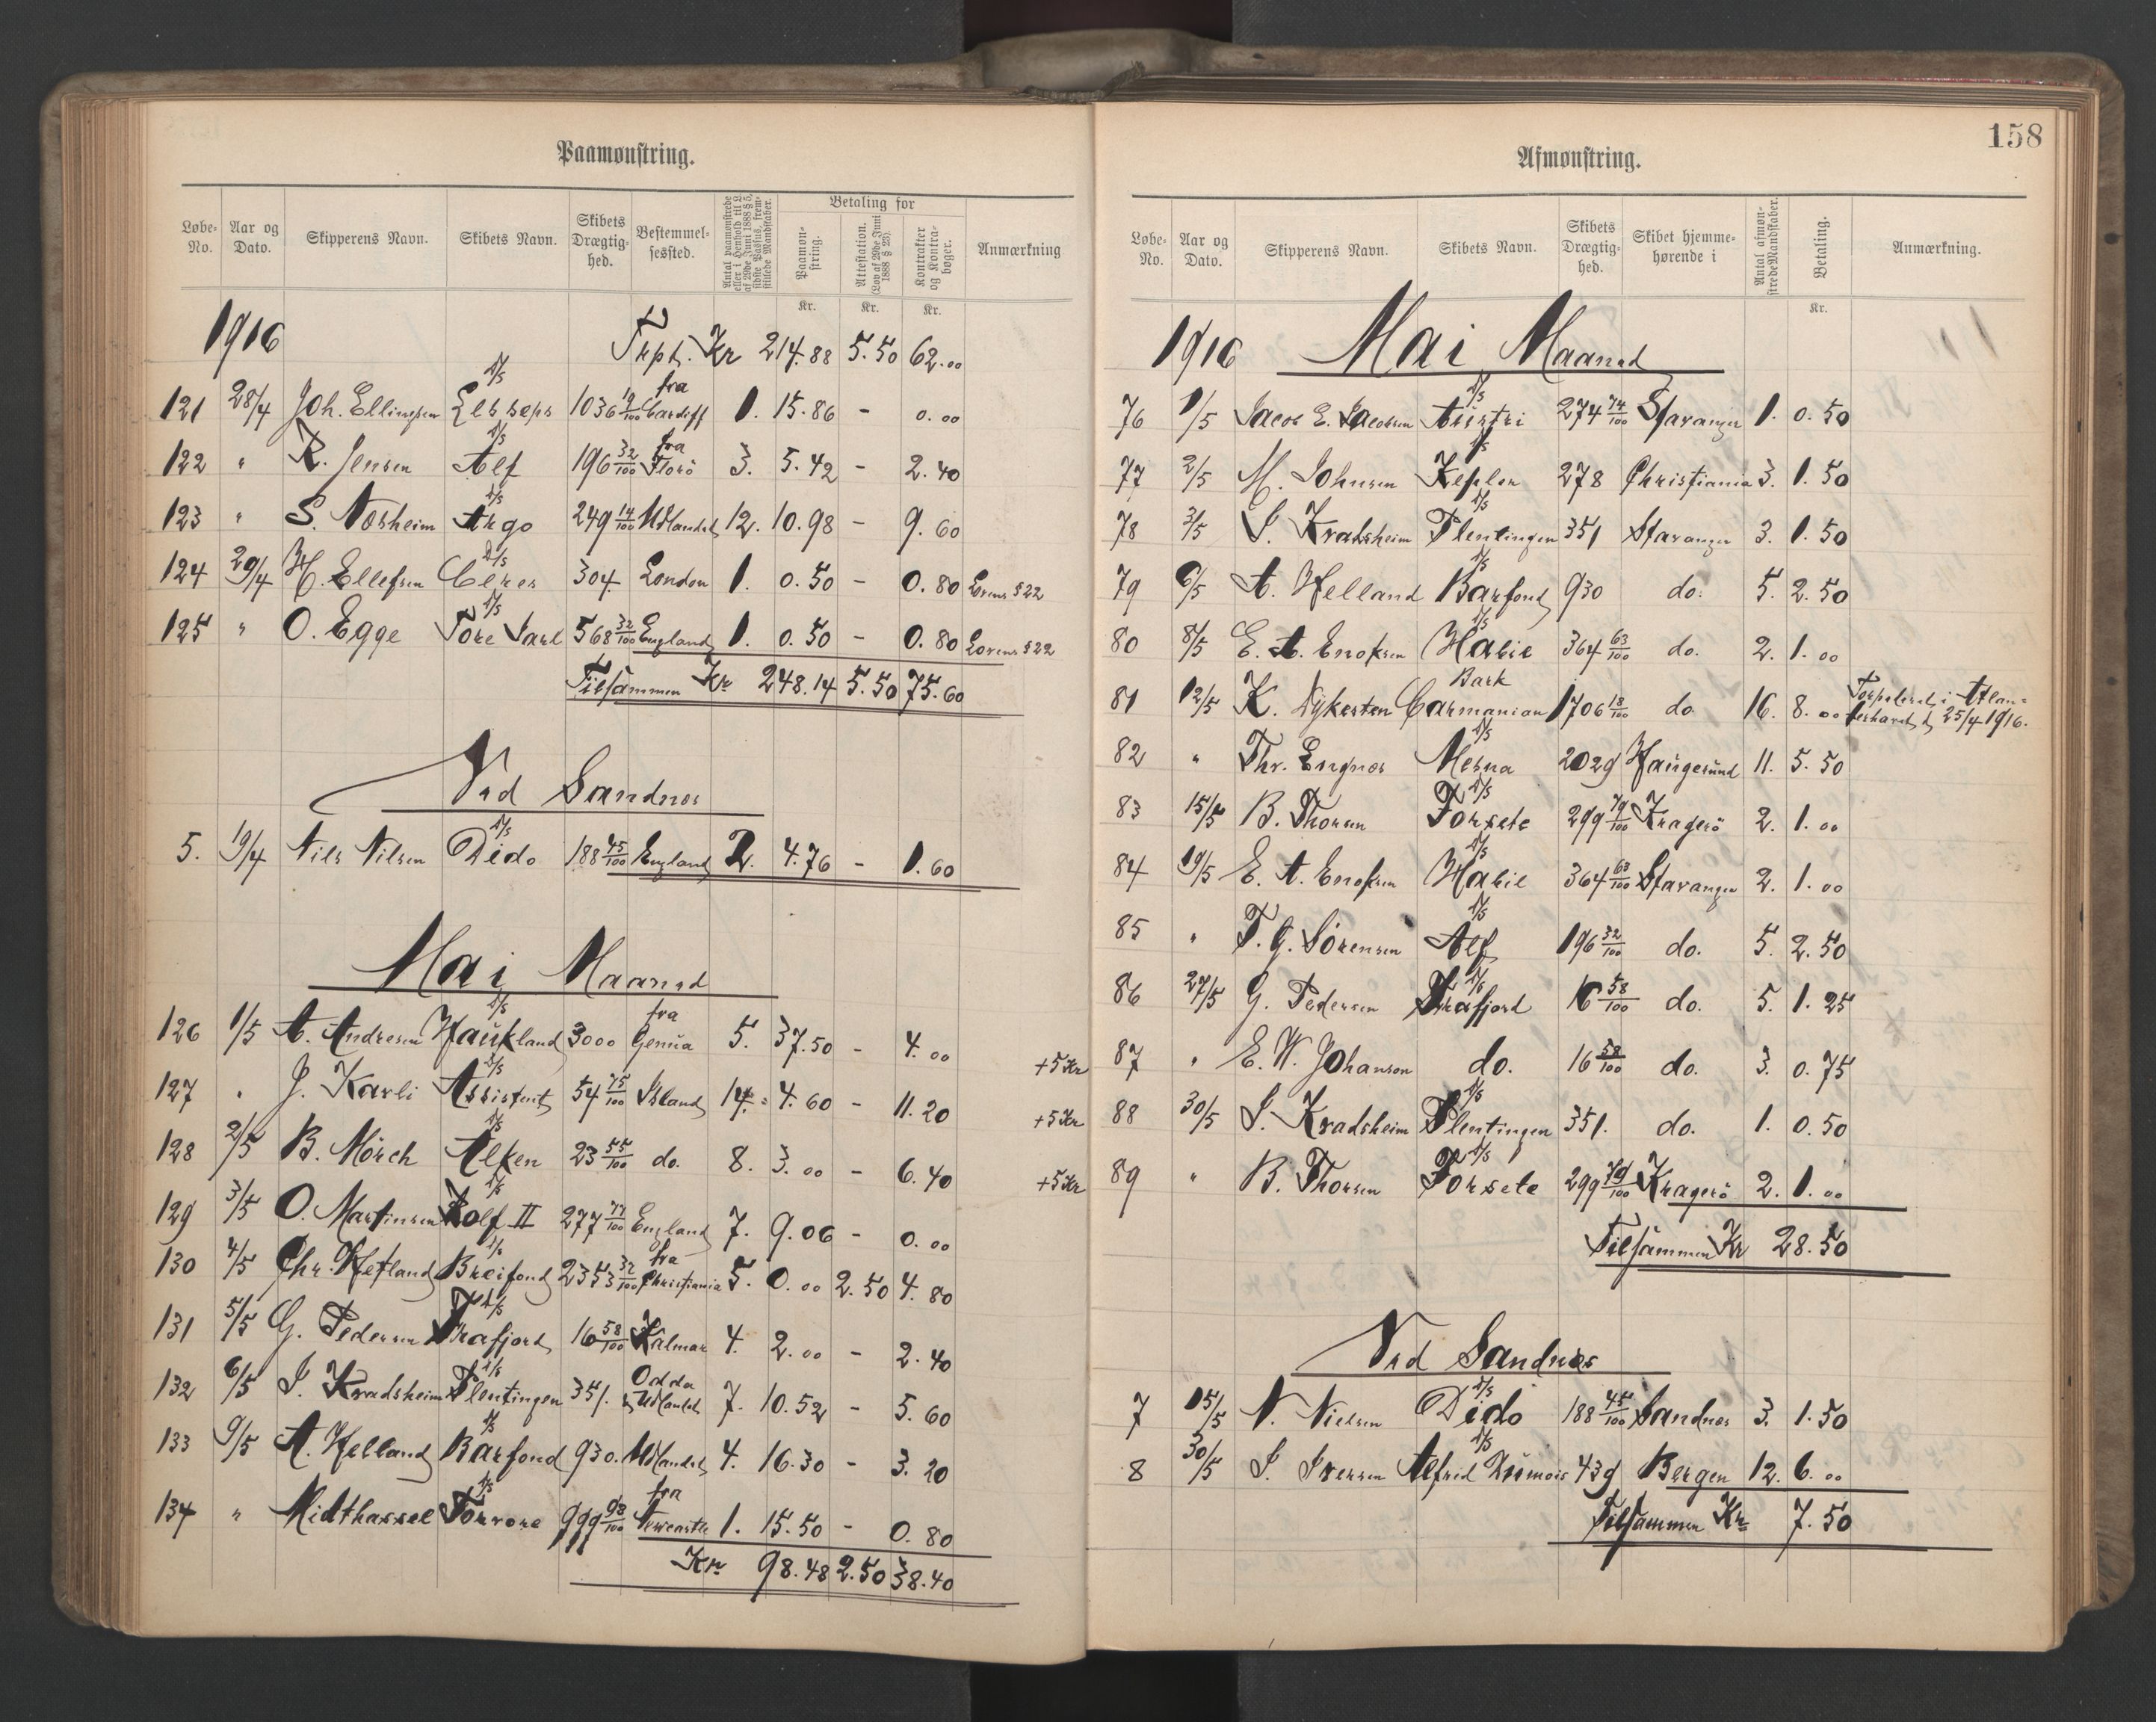 Paamønstring.
Løbe-No. Aar og Dato. Skipperens Navn. Skibets Navn. Skibets Drægtighed. Bestemmelsessted. Antal paamønstrede eller i Henhold til L. af 29de Juni 1888 § 5, sidste Passus, fremstillede Mandskaber. Betaling for Paamønstring. Attestation. (Lov af 29de Juni 1888 § 23). Kontrakter og Kontrabøger. Anmærkning
Kr. Kr. Kr.
1916 Trpt. Kr 214.88 5.50 62.00
121 28/4 Joh. Ellingsen D/S Lesseps 1036 19/100 fra Cardiff 1. 15.86 - 0.00
122 " K. Jensen D/S Alf 196 32/100 fra Florö 3. 5.42 - 2.40
123 " S. Nosheim D/S Argo 249 14/100 Udlandet 12. 10.98 - 9.60
124 29/4 H. Ellefsen D/S Ceres 304. London 1. 0.50 - 0.80 Lovens § 22
125 " O. Egge D/S Tore Jarl 568 32/100 England 1. 0.50 - 0.80 Lovens § 22
Tilsammen Kr 248.14 5.50 75.60
Ved Sandnes
5. 19/4 Nils Nilsen D/S Dido 188 45/100 England 2. 4.76 - 1.60
Mai Maaned
126 1/5 A. Andresen D/S Haukland 3000 fra Genua 5. 37.50 - 4.00
127 " J. Karli D/S Assistent 54 75/100 Island 14. 4.60 - 11.20 +5 Kr
128 2/5 B. Mörch D/S Alken 23 55/100 do. 8. 3.00 - 6.40 +5 Kr
129 3/5 O. Martinsen D/S Rolf II 277 77/100 England 7. 9.06 - 0.00 +5 Kr
130 4/5 Chr. Hetland D/S Breifond 2353 32/100 fra Christiania 5. 0.00 2.50 4.80
131 5/5 G. Pedersen D/S Frafjord 16 58/100 Kalmar 4. 2.00 - 2.40
132 6/5 S. Kvadsheim D/S Flentingen 351. Odda & Udlandet 7. 10.52 - 5.60
133 9/5 A. Helland D/S Barfond 930. Udlandet 4. 16.30 - 3.20
134 " Midthassel D/S Torvore 999 98/100 fra Newcastle 1. 15.50 - 0.80
Kr 98.48 2.50 38.40
158
Afmønstring.
Løbe-No. Aar og Dato. Skipperens Navn. Skibets Navn. Skibets Drægtighed. Skibet hjemmehørende i Antal afmønstrede Mandskaber. Betaling. Anmærkning.
Kr.
1916 Mai Maaned
76 1/5 Jacob E. Jacobsen D/S Austri 274 74/100 Stavanger 1. 0.50
77 2/5 M. Johnsen D/S Kepler 278 Christiania 3. 1.50
78 3/5 S. Kvadsheim D/S Flentingen 351 Stavanger 3. 1.50
79 6/5 A. Helland D/S Barfond 930 do. 5. 2.50
80 8/5 E. A. Enoksen D/S Habil 364 63/100 do. 2. 1.00
81 12/5 K. Dykesten Bark Carmanian 1706 18/100 do 16. 8.00 Torpederet i Atlanterhavet d. 25/4 1916.
82 " Thv. Engnes D/S Mesna 2029 Haugesund 11. 5.50
83 15/5 B. Thorsen D/S Forsete 299 79/100 Kragerö 2. 1.00
84 19/5 E. A. Enoksen D/S Habil 364 63/100 Stavanger 2. 1.00
85 " T. G. Sörensen D/S Alf 196 32/100 do. 5. 2.50
86 27/5 G. Pedersen D/S Frafjord 16 58/100 do. 5. 1.25
87 " E. W. Johanson do. 16 58/100 do. 3. 0.75
88 30/5 S. Kvadsheim D/S Flentingen 351. do. 1. 0.50
89 " B. Thorsen D/S Forsete 299 79/100 Kragerö 2. 1.00
Tilsammen Kr 28.50
Ved Sandnes
7 15/5 N. Nielsen D/S Dido 188 45/100 Sandnes 3. 1.50
8 30/5 S. Iversen D/S Alfred Dumois 439 Bergen 12. 6.00
Tilsammen Kr 7.50